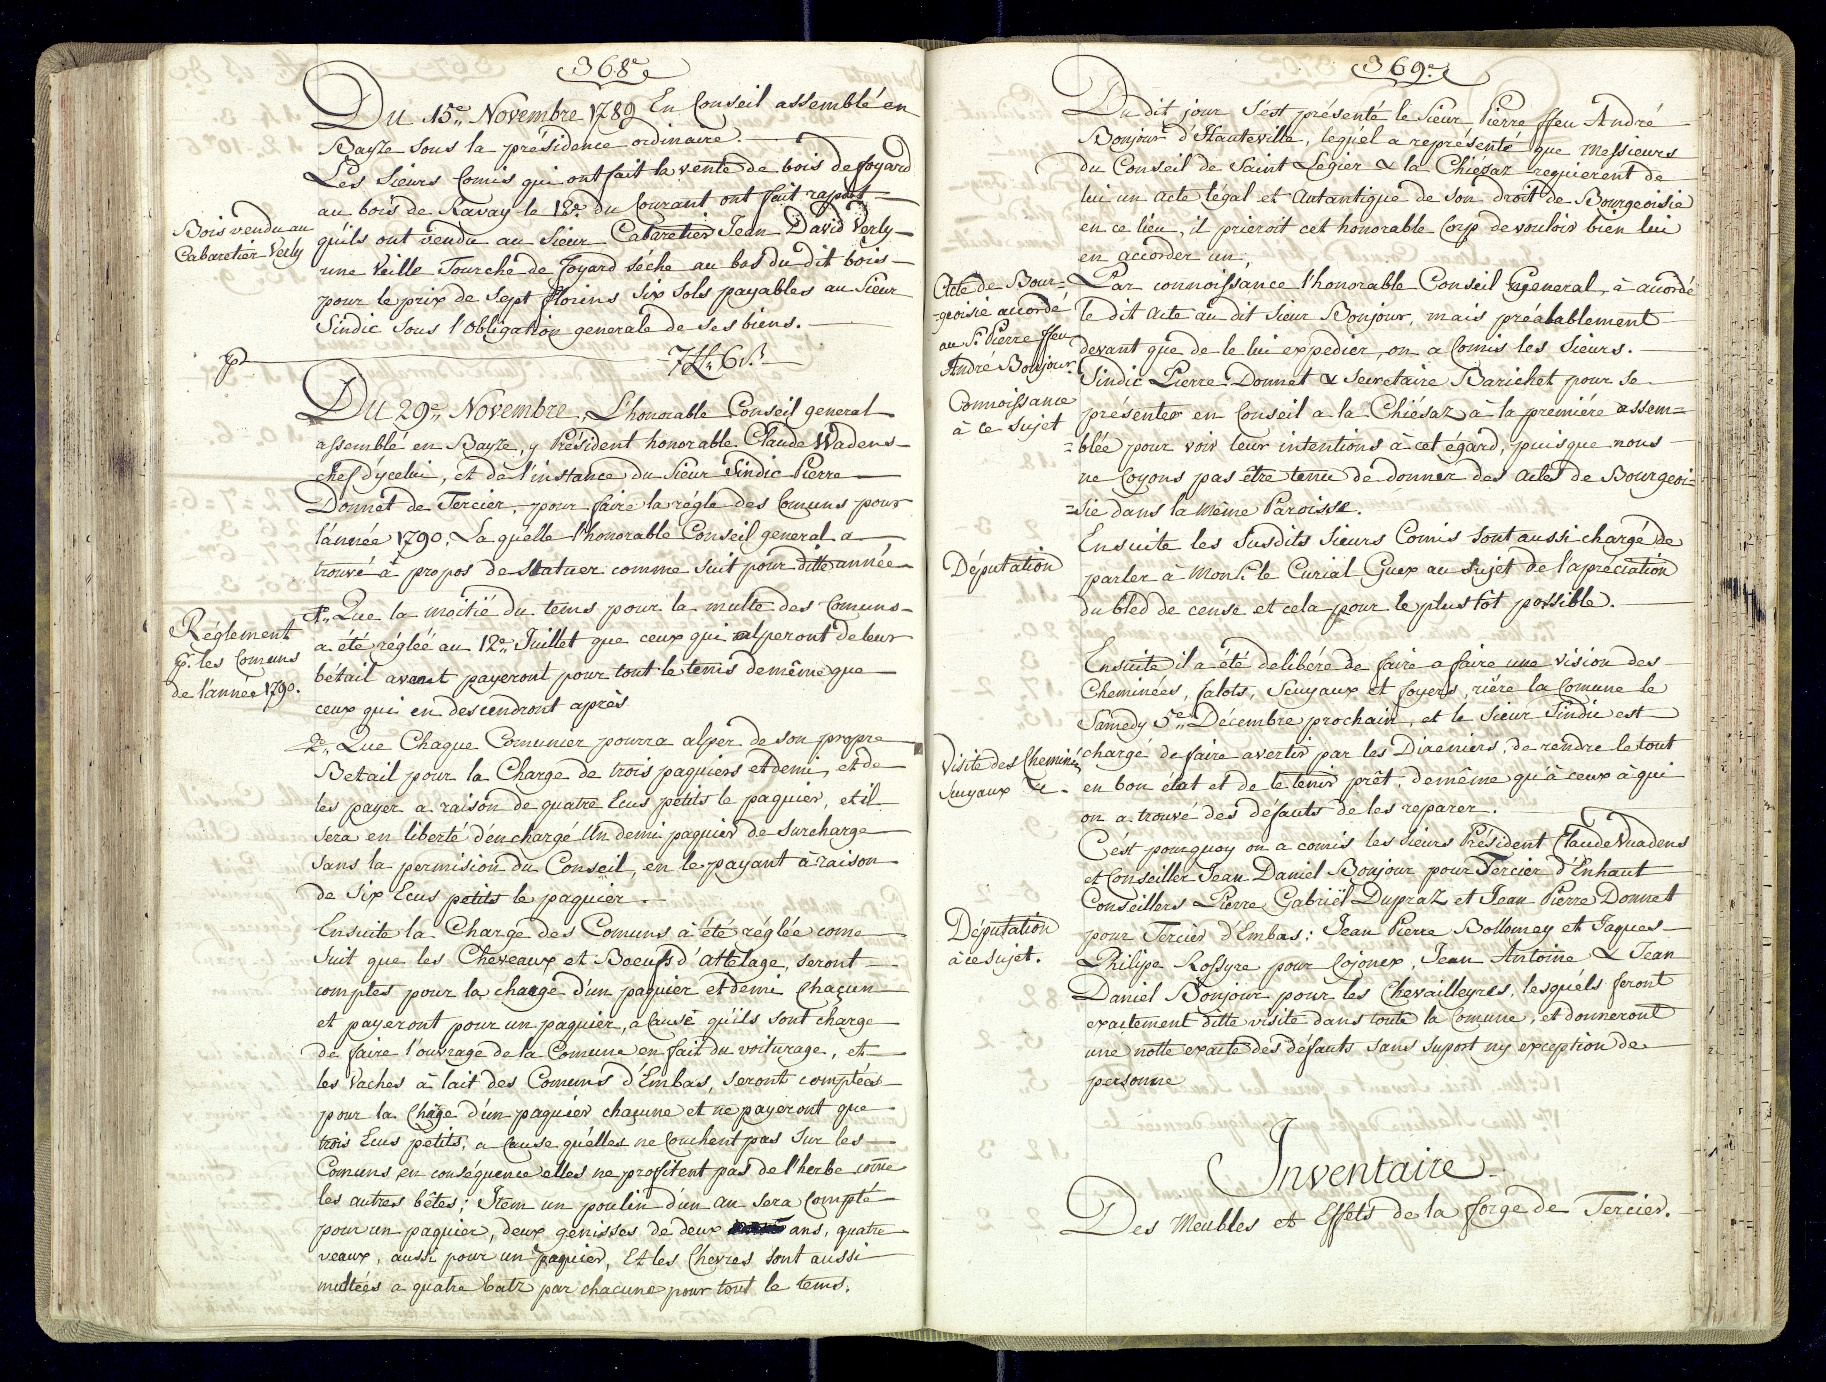 368e
Du 15e,, Novembre 1789 En Conseil assemblé en
Bayze sous la présidence ordinaire.
Les Sieurs Comis qui ont fait la vente de bois de foyard
au bois de Ravay le 12e du Courant ont fait raport
Bois vendu au
Cabaretier Verly
qu'ils ont vendu au Sieur Cabaretier Jean David Verly
une Veille Tourche de foyard séche au bas du dit bois
pour le prix de Sept florins Six Sols payables au Sieur
Sindic sous l'Obligation generale de ses biens.
Du 29e,, Novembre, L'honorable Conseil general
assemblé en Bayze, y Président honorable Claude Wadens
chef dycelui, et de l'instance du Sieur Sindic Pierre
Donnet de Tercier, pour faire la régle des Comuns pour
l'année 1790. La quelle l'honorable Conseil general a
trouvé à propos de Statuer comme Suit pour ditte année
Réglement
pr. les Comuns
de l'année 1790.
1e,, Que la moitié du tems pour la multe des Comuns
a été régléé au 12e,, Juillet que ceux qui alperont de leur
bétail avant payeront pour tout le tems de même que
ceux qui en descendront aprés
2e,, Que Chaque Comunier pourra alper de son propre
Betail pour la Charge de trois paquiers et demi, et de
les payer a raison de quatre Ecus petits le paquier, et il
sera en liberté d'en chargé Un demi paquier de Surcharge
Sans la permision du Conseil, en le payant à raison
de Six Ecus petits le paquier.
Ensuite la Charge des Comuns a été réglée come
Suit que les Cheveaux et Boeufs d'attelage, seront
comptes pour la charge d'un paquier et demi Chaçun
et payeront pour un paquier, a Cause qu'ils sont charge
de faire l'ouvrage de la Comune en fait du voiturage, et
les Vaches à lait des Comuns d'Embas, seront comptées
pour la Chãge d'un paquier chaçune et ne payeront que
trois Ecus petits, a Cause qu'elles ne Couchent pas Sur les
Comuns en conséquence elles ne profitent pas de l'herbe come
les autres bêtes; Item un poulin d'un an sera Compté
pour un paquier, deux genisses de deux ans, quatre
veaux, aussi pour un paquier, Et les Chevres sont aussi
multées a quatre batz par chacune pour tout le tems.
369e
Du dit jour S'est présenté le Sieur Pierre ffeu André
Bonjour d'Hauteville, lequel a représenté que Messieurs
du Conseil de Saint Legier & la Chiésaz requierent de
lui un acte légal et Autantique de son droit de Bourgeoisie
en ce lieu, il prieroit cet honorable Corp de vouloir bien lui
en accorder un.
Acte de Bour=
=geoisie accordé
au Sr. Pierre ffeu
André Bonjour.
Connoissance
à ce sujet
Par connoissance l'honorable Conseil general, à accordé
le dit acte au dit Sieur Bonjour, mais préalablement
devant que de le lui expedier, on a Comis les Sieurs.
Sindic Pierre Donnet & Secretaire Barichet pour se
présenter en Conseil a la Chiésaz à la premiére assem=
=blée pour voir leur intentions à cet égard, puisque nous
ne Croyons pas être tenu de donner des actes de Bourgeoi=
=sie dans la même Paroisse.
Députation
Ensuite les Susdits Sieurs Comis sont aussi chargé de
parler à Monsr. le Curial Guex au Sujet de l'apréciation
du bled de cense et cela pour le plus tôt possible.
Ensuite il a été deliberé de faire a faire une vision des
Cheminées, falots, Seuyaux et foyers, riére la Comune le
Samedy 5e,, Décembre prochain, et le Sieur Sindic est
Visite des Cheminés
Suyaux &c.
chargé de faire avertir par les Dixeniers, de rendre le tout
en bon état et de le tenir prêt, de même qu'à ceux à qui
on a trouvé des défauts de les reparer.
C'ést pourquoy on a comis les Sieurs Président Claude Vuadens
et Conseiller Jean Daniel Bonjour pour Tercier d'Enhaut
Conseillers Pierre Gabriël Dupraz et Jean Pierre Donnet
Députation
à ce sujet.
pour Tercier d'Embas; Jean Pierre Bollomey et Jaques
Philipe Rossyre pour Cojonex, Jean Antoine & Jean
Daniel Bonjour pour les Chevailleyres, lesquels feront
exactement ditte visite dans toute la Comune, et donneront
une notte exacte des défauts sans suport ny exception de
personne
Inventaire
Des Meubles et Effets de la forge de Tercier.